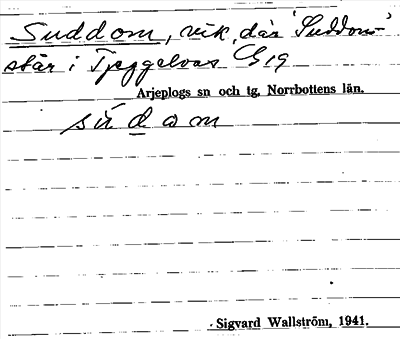 Suddom, vik, där 'Suddom-'
står i Tjeggelvas G 19
Arjeplogs sn och tg. Norrbottens län.
sudom
Sigvard Wallström, 1941.